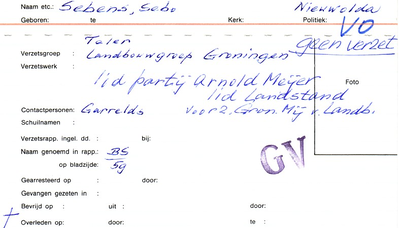 Naam etc.: Sebens, Sebo Nieuwolda
Geboren: te Kerk: Politiek: VO
geen verzet
Taler
Verzetsgroep : Landbouwgroep Groningen
Verzetswerk : lid partij Arnold Meijer
lid Landstand
Foto
Contactpersonen: Garrelds voorz. Gron. Mij v. Landb.
Schuilnamen :
Verzetsrapp. ingel. dd. : bij:
Naam genoemd in rapp.: BS
op bladzijde: 59
GV
Gearresteerd op : door:
Gevangen gezeten in :
Bevrijd op : uit : door:
Overleden op: door: te :